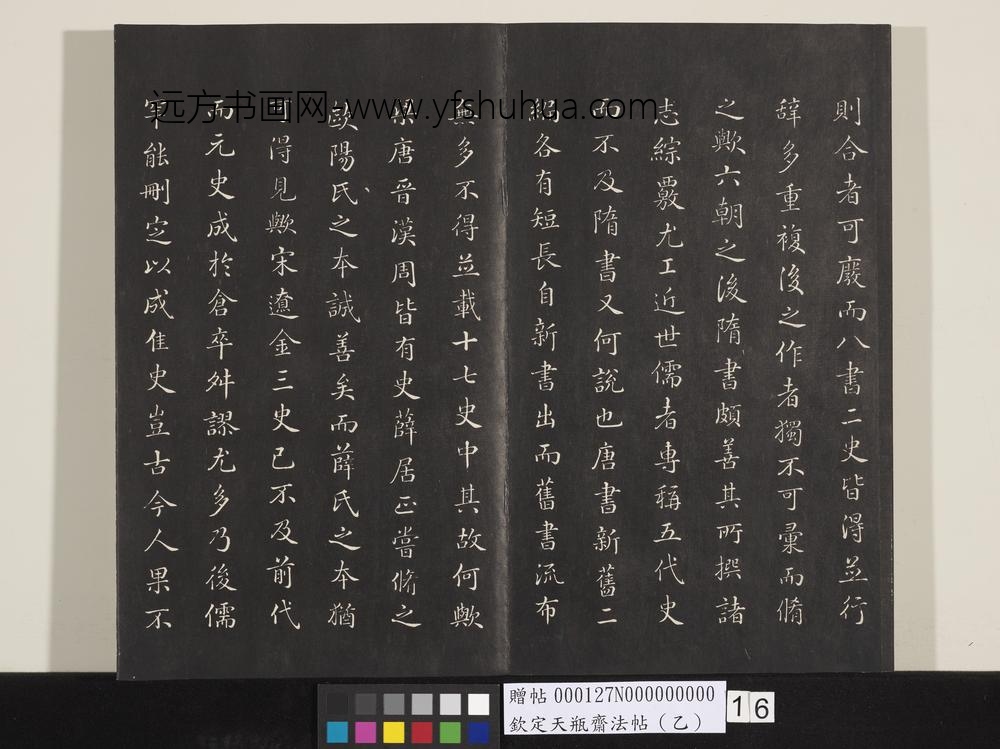 則合者可廢而八書二史皆得並行
辭多重複後之作者獨不可彙而脩
之歟六朝之後隋書頗善其所撰諸
志綜覈尤工近世儒者專稱五代史
而不及隋書又何說也唐書新舊二
編各有短長自新書出而舊書流布
無多不得並載十七史中其故何歟
梁唐晉漢周皆有史薛居正嘗脩之
歐陽氏之本誠善矣而薛氏之本猶
可得見歟宋遼金三史已不及前代
而元史成於倉卒舛謬尤多乃後儒
罕能刪定以成隹史豈古今人果不
远方书画网-www.yfshuhua.com
贈帖 000127N000000000
欽定天瓶齋法帖（乙）
16